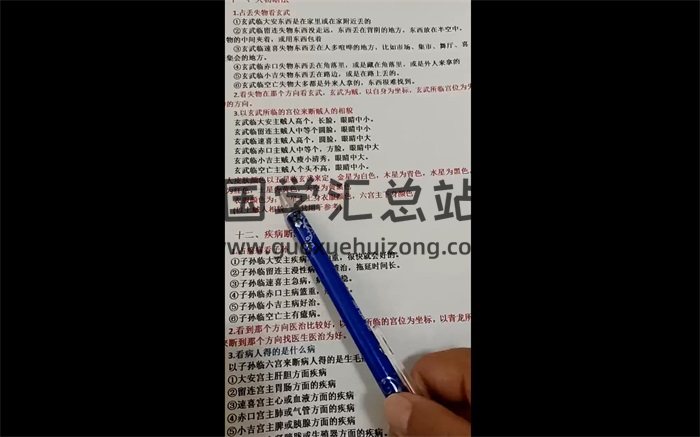 1.占丢失物看玄武
①玄武临大安东西是在家里或在家附近丢的
②玄武临留连失物东西没走远，东西丢在背阴的地方，东西放在半空中，
物的中间夹着，或用东西包着
③玄武临速喜失物东西丢在人多喧哗的地方，比如市场、集市、舞厅、喜
集会的地方。
④玄武临赤口失物东西丢在角落里，或是藏在角落里，或是外人来拿的
⑤玄武临小吉失物东西丢在路边，或是在路上丢的。
⑥玄武临空亡失物大都是外来人拿的，东西很难找到。
2.看失物在那个方向看玄武，玄武为贼，以自身为坐标，玄武所临宫位为失
的方向。
3.以玄武所临的宫位来断贼人的相貌
玄武临大安主贼人高个，长脸，眼睛中小。
玄武临留连主贼人中等个圆脸，眼睛中小
玄武临速喜主贼人高个，圆脸，眼睛中大
玄武临赤口主贼人中等个，方脸，眼睛中大
玄武临小吉主贼人瘦小清秀，眼睛中大。
玄武临空亡主贼人个头不高，眼睛中小。
来定，金星为白色，木星为青色，水星为黑色，
国学汇总站
www.guoxuehuizong.com
十二、疾病断
①子孙临大安主疾病 重，很快就会好的。
②子孙临留连主慢性病 治，拖延时间长。
③子孙临速喜主急病，
④子孙临赤口主病重，
⑤子孙临小吉主病好治。
⑥子孙临空亡主有癔病。
2.看到那个方向医治比较好，以 所临的宫位为坐标，以青龙所
来断到那个方向找医生医治为好。
3.看病人得的是什么病
以子孙临六宫来断病人得的是生毛
①大安宫主肝胆方面疾病
②留连宫主胃肠方面的疾病
③速喜宫主心或血液方面的疾病
④赤口宫主肺或气管方面的疾病
⑤小吉宫主脾或胰腺方面的疾病